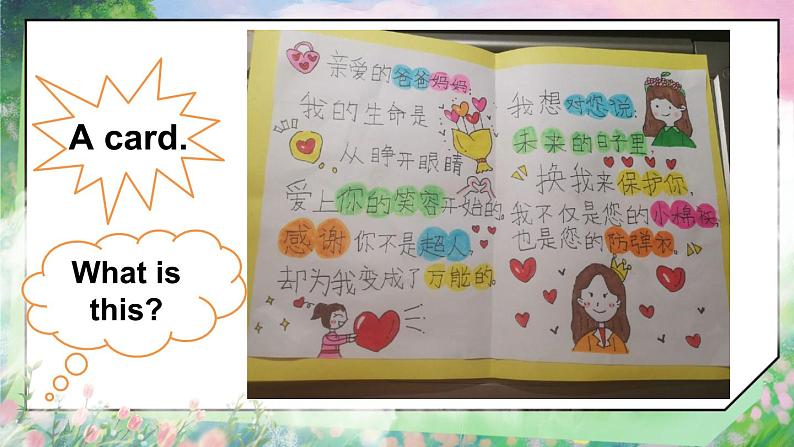 A card.
What is
this?
亲爱的爸爸妈妈:
我的生命是
从睁开眼睛
爱上你的笑容开始的。
感谢你不是超人,
却为我变成了万能的。
我想对您说:
未来的日子里,
换我来保护你,
我不仅是您的小棉袄,
也是您的防弹衣。